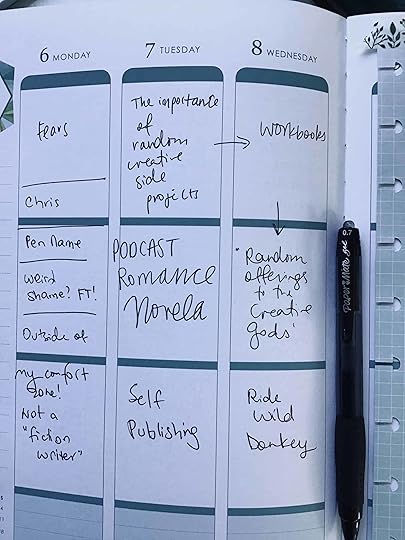 6 MONDAY
7 TUESDAY
8 WEDNESDAY
Fears
Chris
Pen Name
weird
shame? FT!
Outside of
my comfort
zone!
Not a
"fiction
writer"
The importance
of
random
creative
side
projects
PODCAST
Romance
Novela
Self
Publishing
Workbooks
"Random
offerings
to the
Creative
gods'
Ride
Wild
Donkey
PAPERMATE gel 0.7